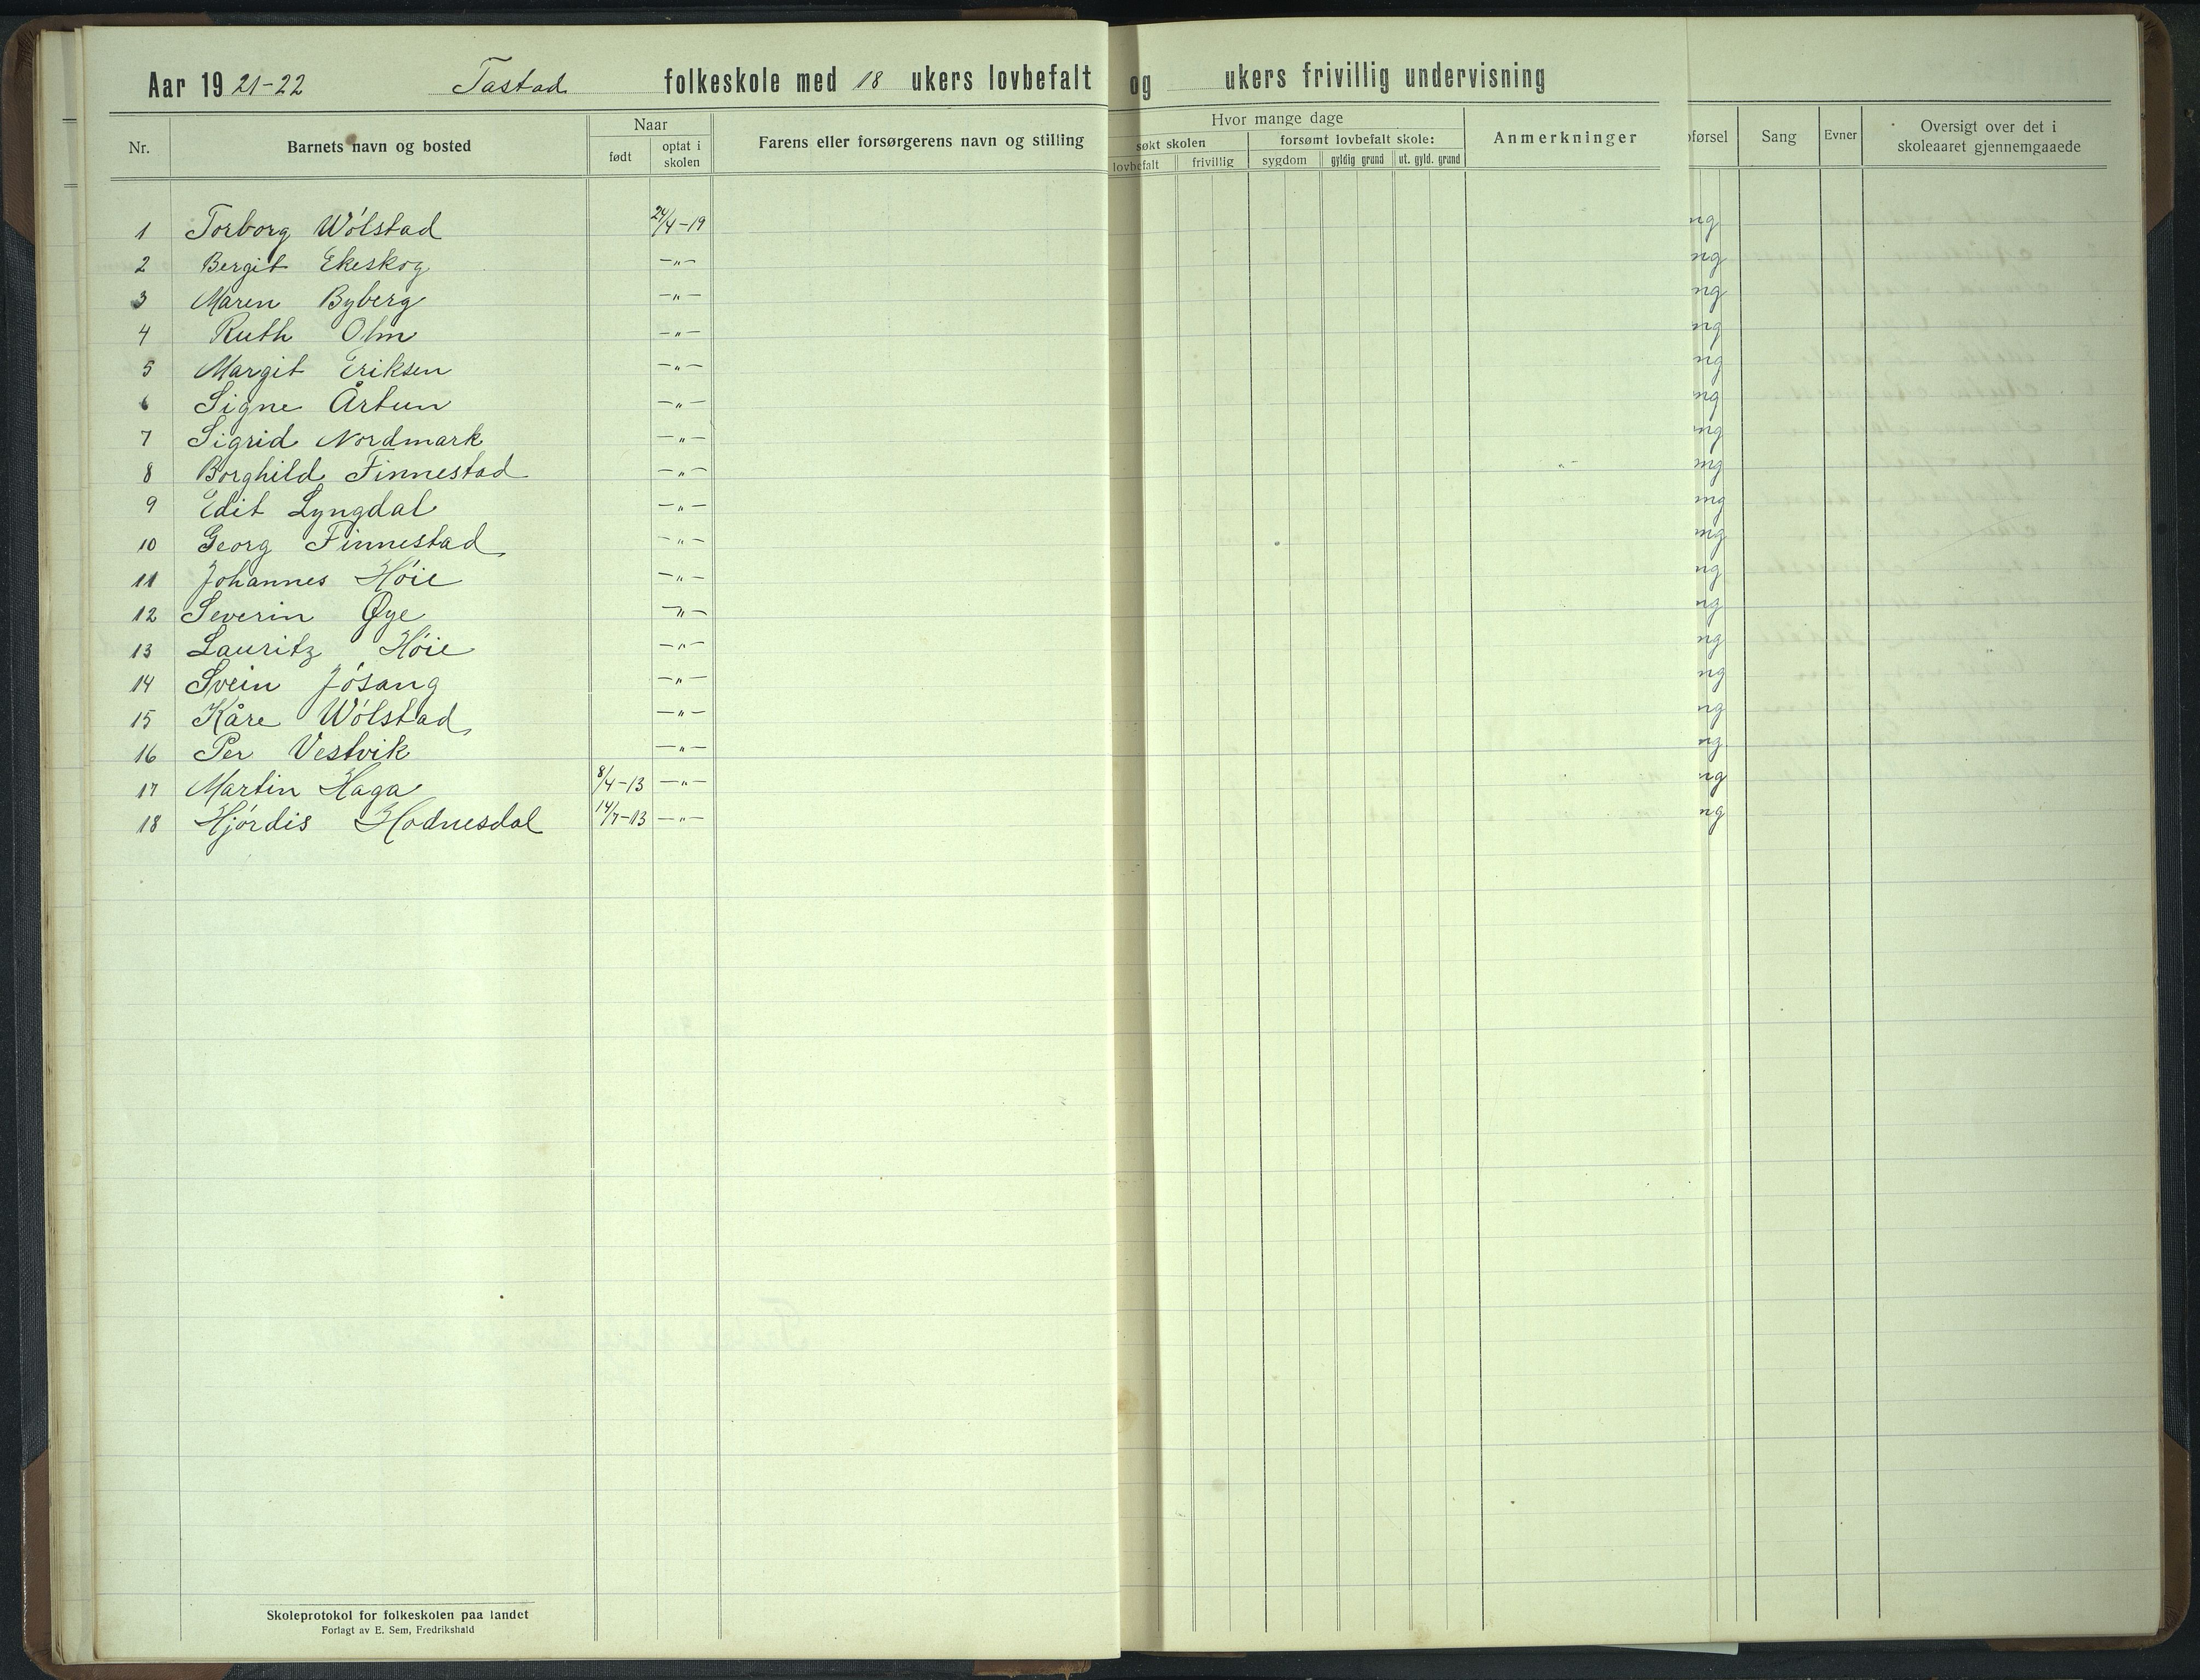 Aar 1921-22 Tastad folkeskole med 18 ukers lovbefalt og ukers frivillig undervisning
Nr. Barnets navn og bosted Naar født optat i skolen Farens eller forsørgerens navn og stilling
Hvor mange dage
søkt skolen forsømt lovbefalt skole: Anmerkninger
lovbefalt frivillig sygdom gyldig grund ut. gyld. grund
førsel Sang Evner Oversigt over det i skoleaaret gjennemgaaede
1 Torborg Wólstad 24/4-19 ng
2 Bergit Ekeskog -"- ng
3 Maren Byberg -"- ng
4 Ruth Olm -"- ng
5 Margit Eriksen -"- ng
6 Signe Årtun -"- ng
7 Sigrid Nordmark -"- ng
8 Borghild Finnestad -"- mg
9 Edit Lyngdal -"- mg
10 Georg Finnestad -"- mg
11 Johannes Hóie -"- ng
12 Severin Øye -"- ng
13 Lauritz Hóie -"- ng
14 Svein Jósang -"- ng
15 Kåre Wólstad -"- ng
16 Per Vestvik -"- ng
17 Martin Haga 8/4-13 -"- ng
18 Hjórdis Hodnesdal 14/7-13 -"- ng
Skoleprotokol for folkeskolen paa landet
Forlagt av E. Sem, Fredrikshald